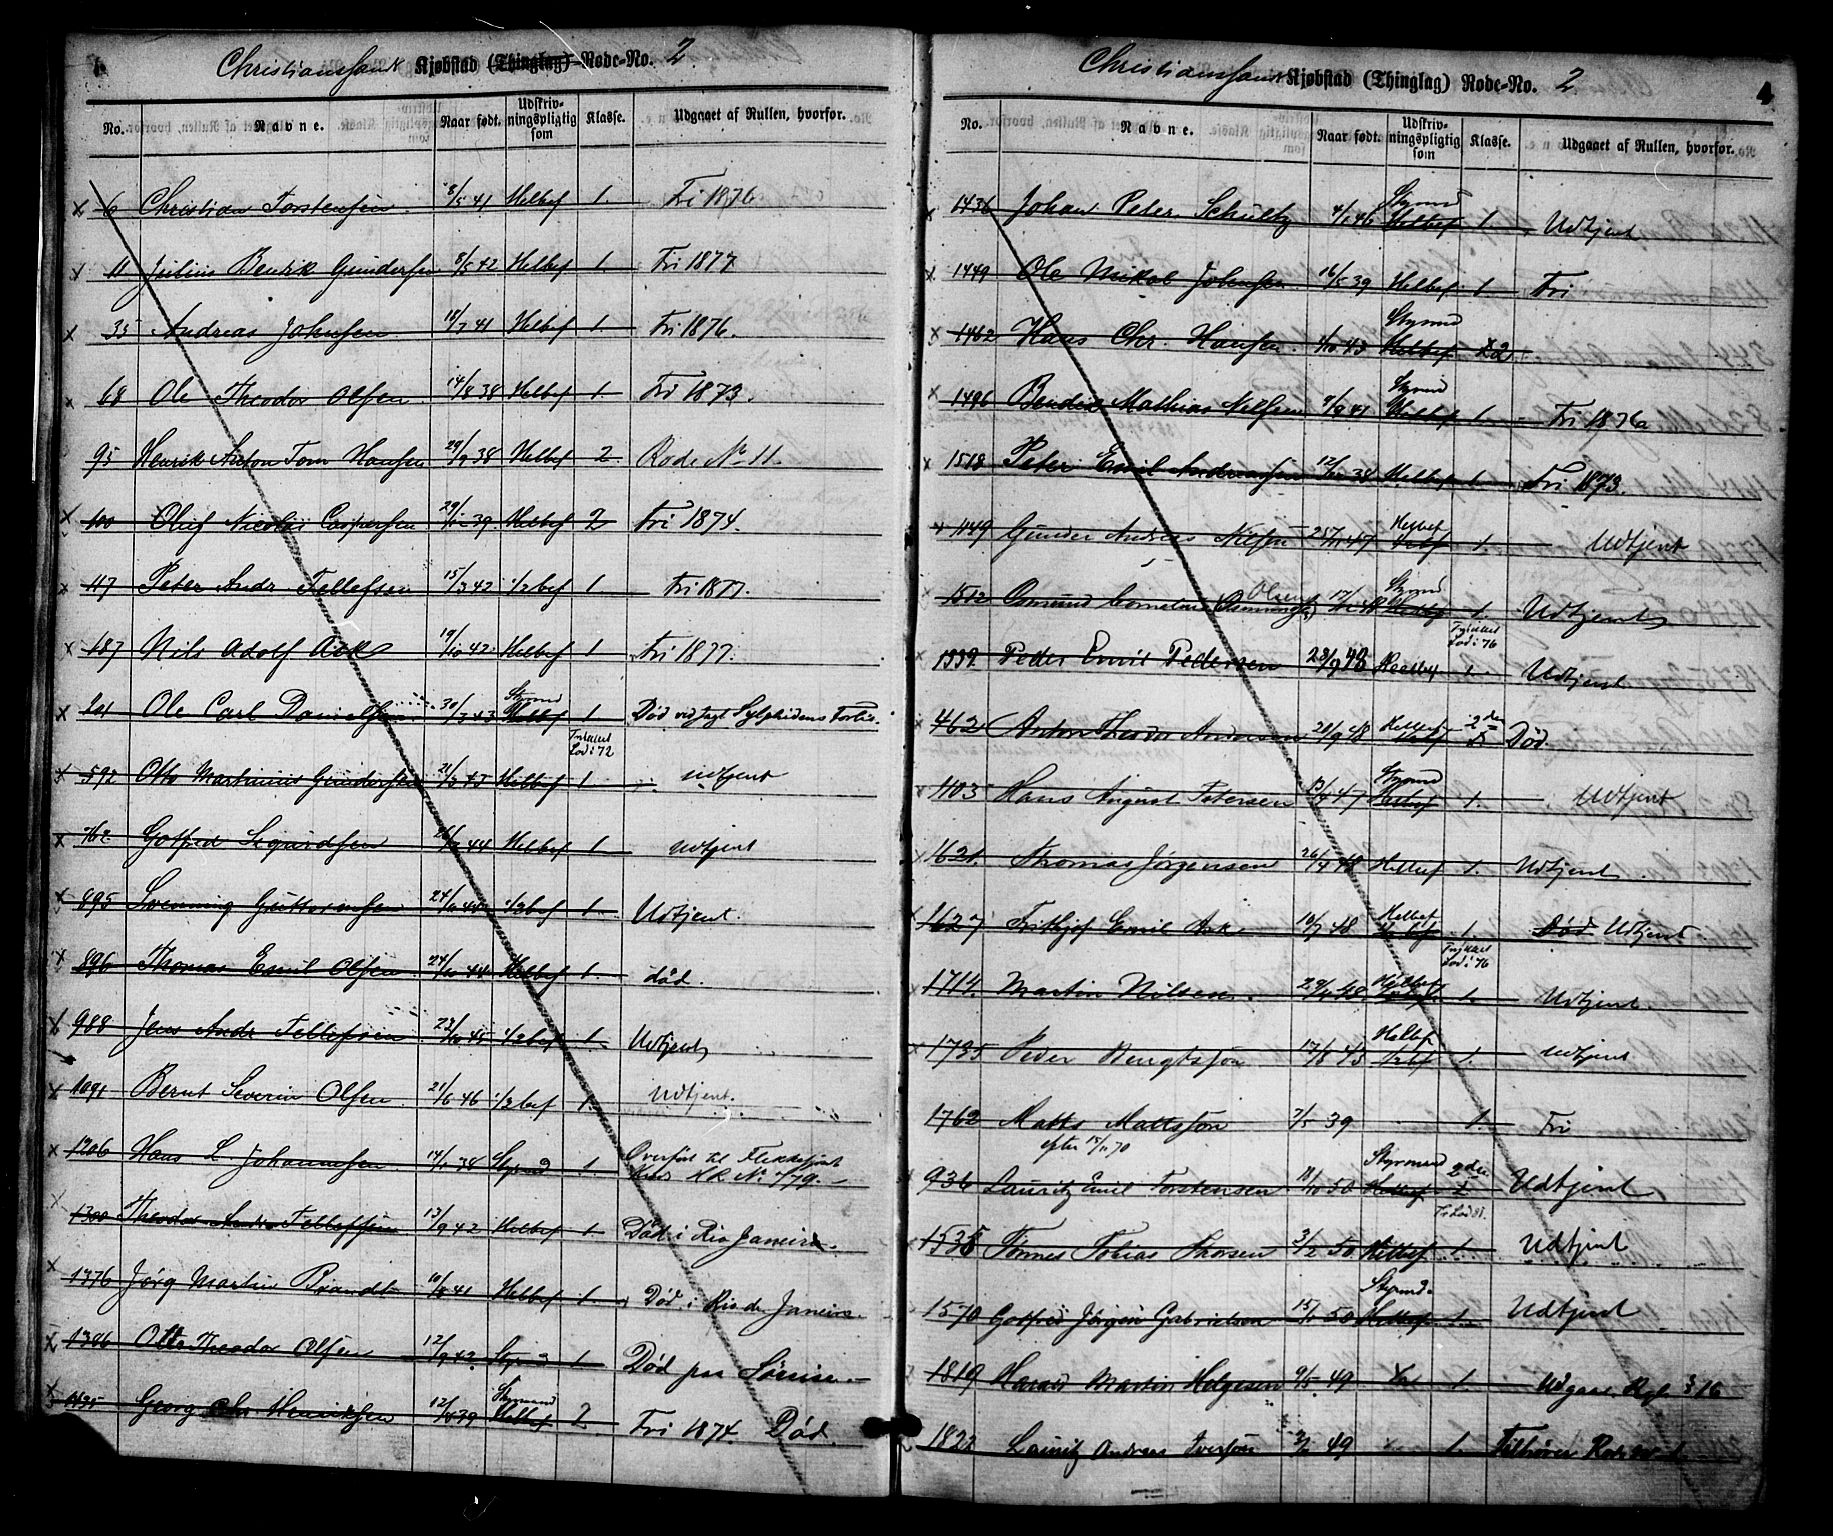 Christianssand Kjøbstad (Thinglag) Rode-No. 2
No. Navne. Naar født. Udskrivningspligtig som Klasse. Udgaaet af Rullen, hvorfor.
6 Christian Torstensen 8/5 41 Helbef 1. Fri 1876
11 Julius Bendik Gundersen 8/5 42 Helbef 1. Fri 1877
35 Andreas Johnsen 18/7 41 Helbef 1. Fri 1876.
68 Ole Theodor Olsen 14/8 38 Helbef 1. Fri 1873.
95 Henrik Anton Tom Hansen 29/9 38 Helbef 2. Rode No 11.
100 Oluf Nicolai Caspersen 39 Helbef 2 Fri 1874.
117 Peter Andr Tellefsen 15/3 42 1/2bef 1 Fri 1877.
187 Nils Adolf Ask 19/10 42 Helbef 1 Fri 1877.
Styrmd
201 Ole Carl Danielsen 30/3 43 Helbef 1 Død
Frilod i 72
592 Otto Martinius Gundersen 45 Helbef 1. Udtjent
762 Gotfred Sigurdsen 44 Helbef 1 Udtjent
895 Svenning Guttormsen 24/ 44 1/2bef 1. Udtjent.
896 Thomas Emil Olsen 24/10 44 Helbef 1. død.
988 Jens Andr Tellefsen 23/10 45 1/2bef 1. Udtjent
1091 Bernt Severin Olsen 21/6 46 1/2bef 1. Udtjent.
1206 Hans L. Johannesen 14/ 34 Styrmd 1. Overført til Flekkefjord
Krds HR No 779.
1300 Theodor Andr Tellefsen 13/9 42 Helbef 1 Død i Rio Janeiro.
1376 Jørg Martin Brandt 10/ 41 Helbef 1. Død i Rio de Janeiro
1386 Otto Theodor Olsen 12/9 42 Styrmd 1 Død paa Søreise.
Styrmand
1435 Georg Chr Henriksen 12/ 39 Helbef 2 Fri 1874. Død.
Christianssand Kjøbstad (Thinglag) Rode-No. 2 4
No. Navne. Naar født. Udskrivningspligtig som Klasse. Udgaaet af Rullen, hvorfor.
Styrmd
1436 Johan Peter Schultz 4/1 46 Helbef 1. Udtjent
1449 Ole Mikal Johnsen 16/5 39 Helbef 1 Fri
Styrmd
1462 Hans Chr. Hansen 43 Helbef 2
Styrmd
1496 Bendix Mathias Nilsen 9/9 41 Helbef 1. Fri 1876
1518 Peter Emil Andreassen 12/10 34 Helbef 1. Fri 1873.
Helbef
449 Gunder Andreas Nilsen 25/11 47 1/2bef 1. Udtjent
Olsen Styrmd
1512 Osmund Cornelius 48 Helbef 1. Udtjent
Frilod i 76
1332 Peder Emil Pedersen 28/9 48 Heelbef 1. Udtjent
Helbef 2den
462 Anton Theodor Andersen 20/9 48 1/2bef Død
Styrmd
403 Hans August Petersen 47 Helbef 1. Udtjent
1621. Thomas Jørgensen 26/4 48 Helbef 1. Udtjent
Helbef
1627 Frithjof Emil Ask 10/7 48 1/2bef 1. Død Udtjent.
Frilod i 76
Helbef
1714. Martin Nilsen 29/ 48 1/2bef 1. Udtjent
Helbef
1735 Peder Bengtsson 17/8 45 1/2bef 1. Udtjent
1762 Matts Mattsson 7/5 39 1. Fri
efter 15/11 70
Styrmand 2den
936 Lauritz Emil Torstensen 18/10 50 Helbef 1 Udtjent
1535 Tønnes Tobias Thorsen 3/2 50 Helbef 1. Udtjent
Styrmd.
1570 Gotfred Jørgen Gabrielsen 15/ 50 Helbef 1. Udtjent
1819 Harald Martin Helgesen 9/5 49 1. Udgaat Rgl § 16
1822 Lauritz Andreas Iversen 49 1. Tilhører Rode